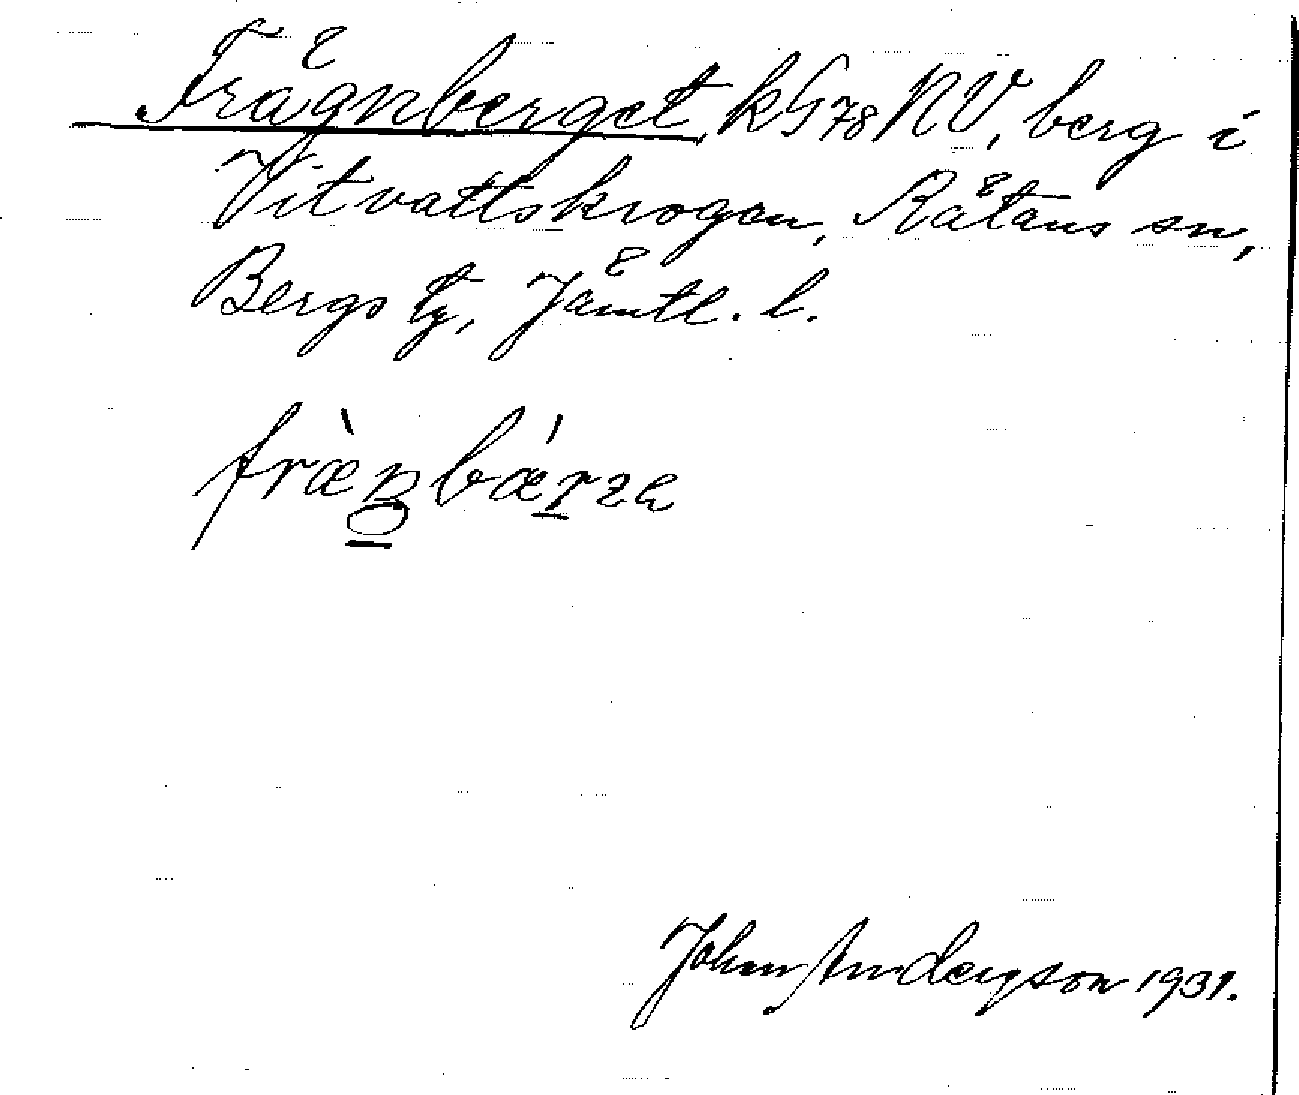 Frägnberget kG78NV, berg i
Vitvattskrogen, Rätans sn,
Bergs tg, Jämtl. l.
fræ̀n̥bǽrzɐ
John Andersson 1931.